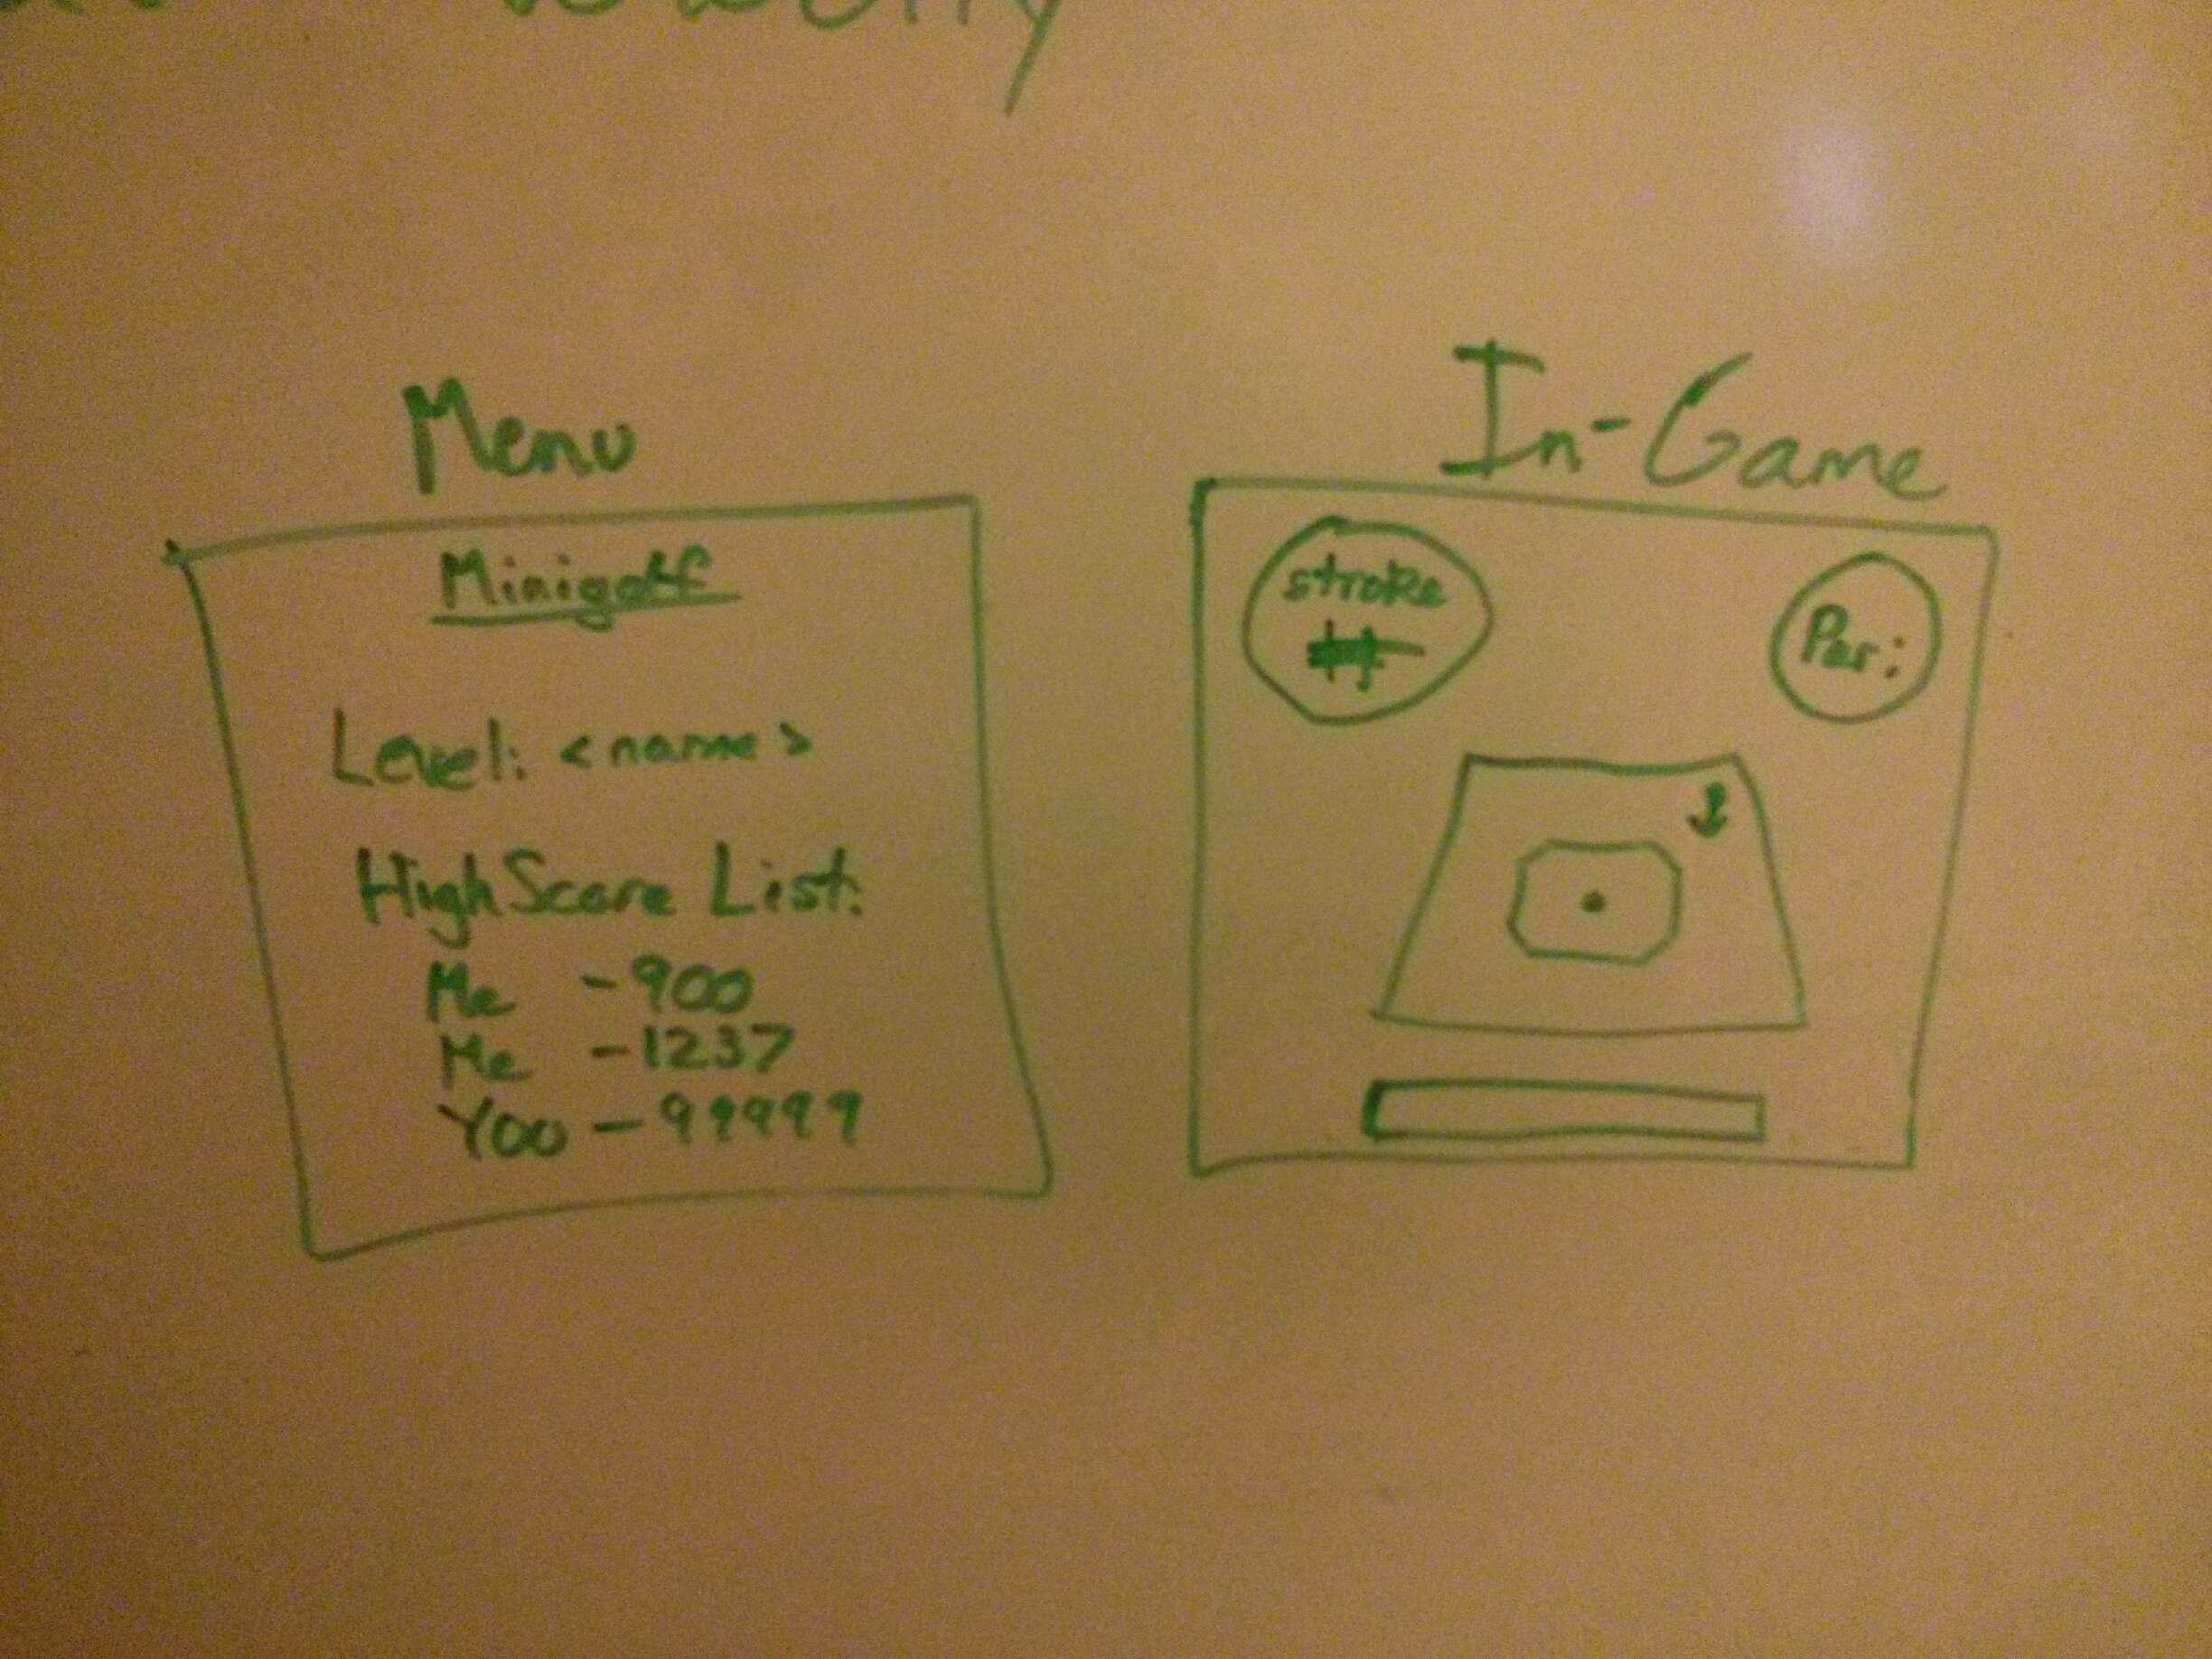 velocity
Menu
Minigolf
Level: <name>
HighScore List:
Me - 900
Me - 1237
You - 99999
In-Game
stroke
#
Par: